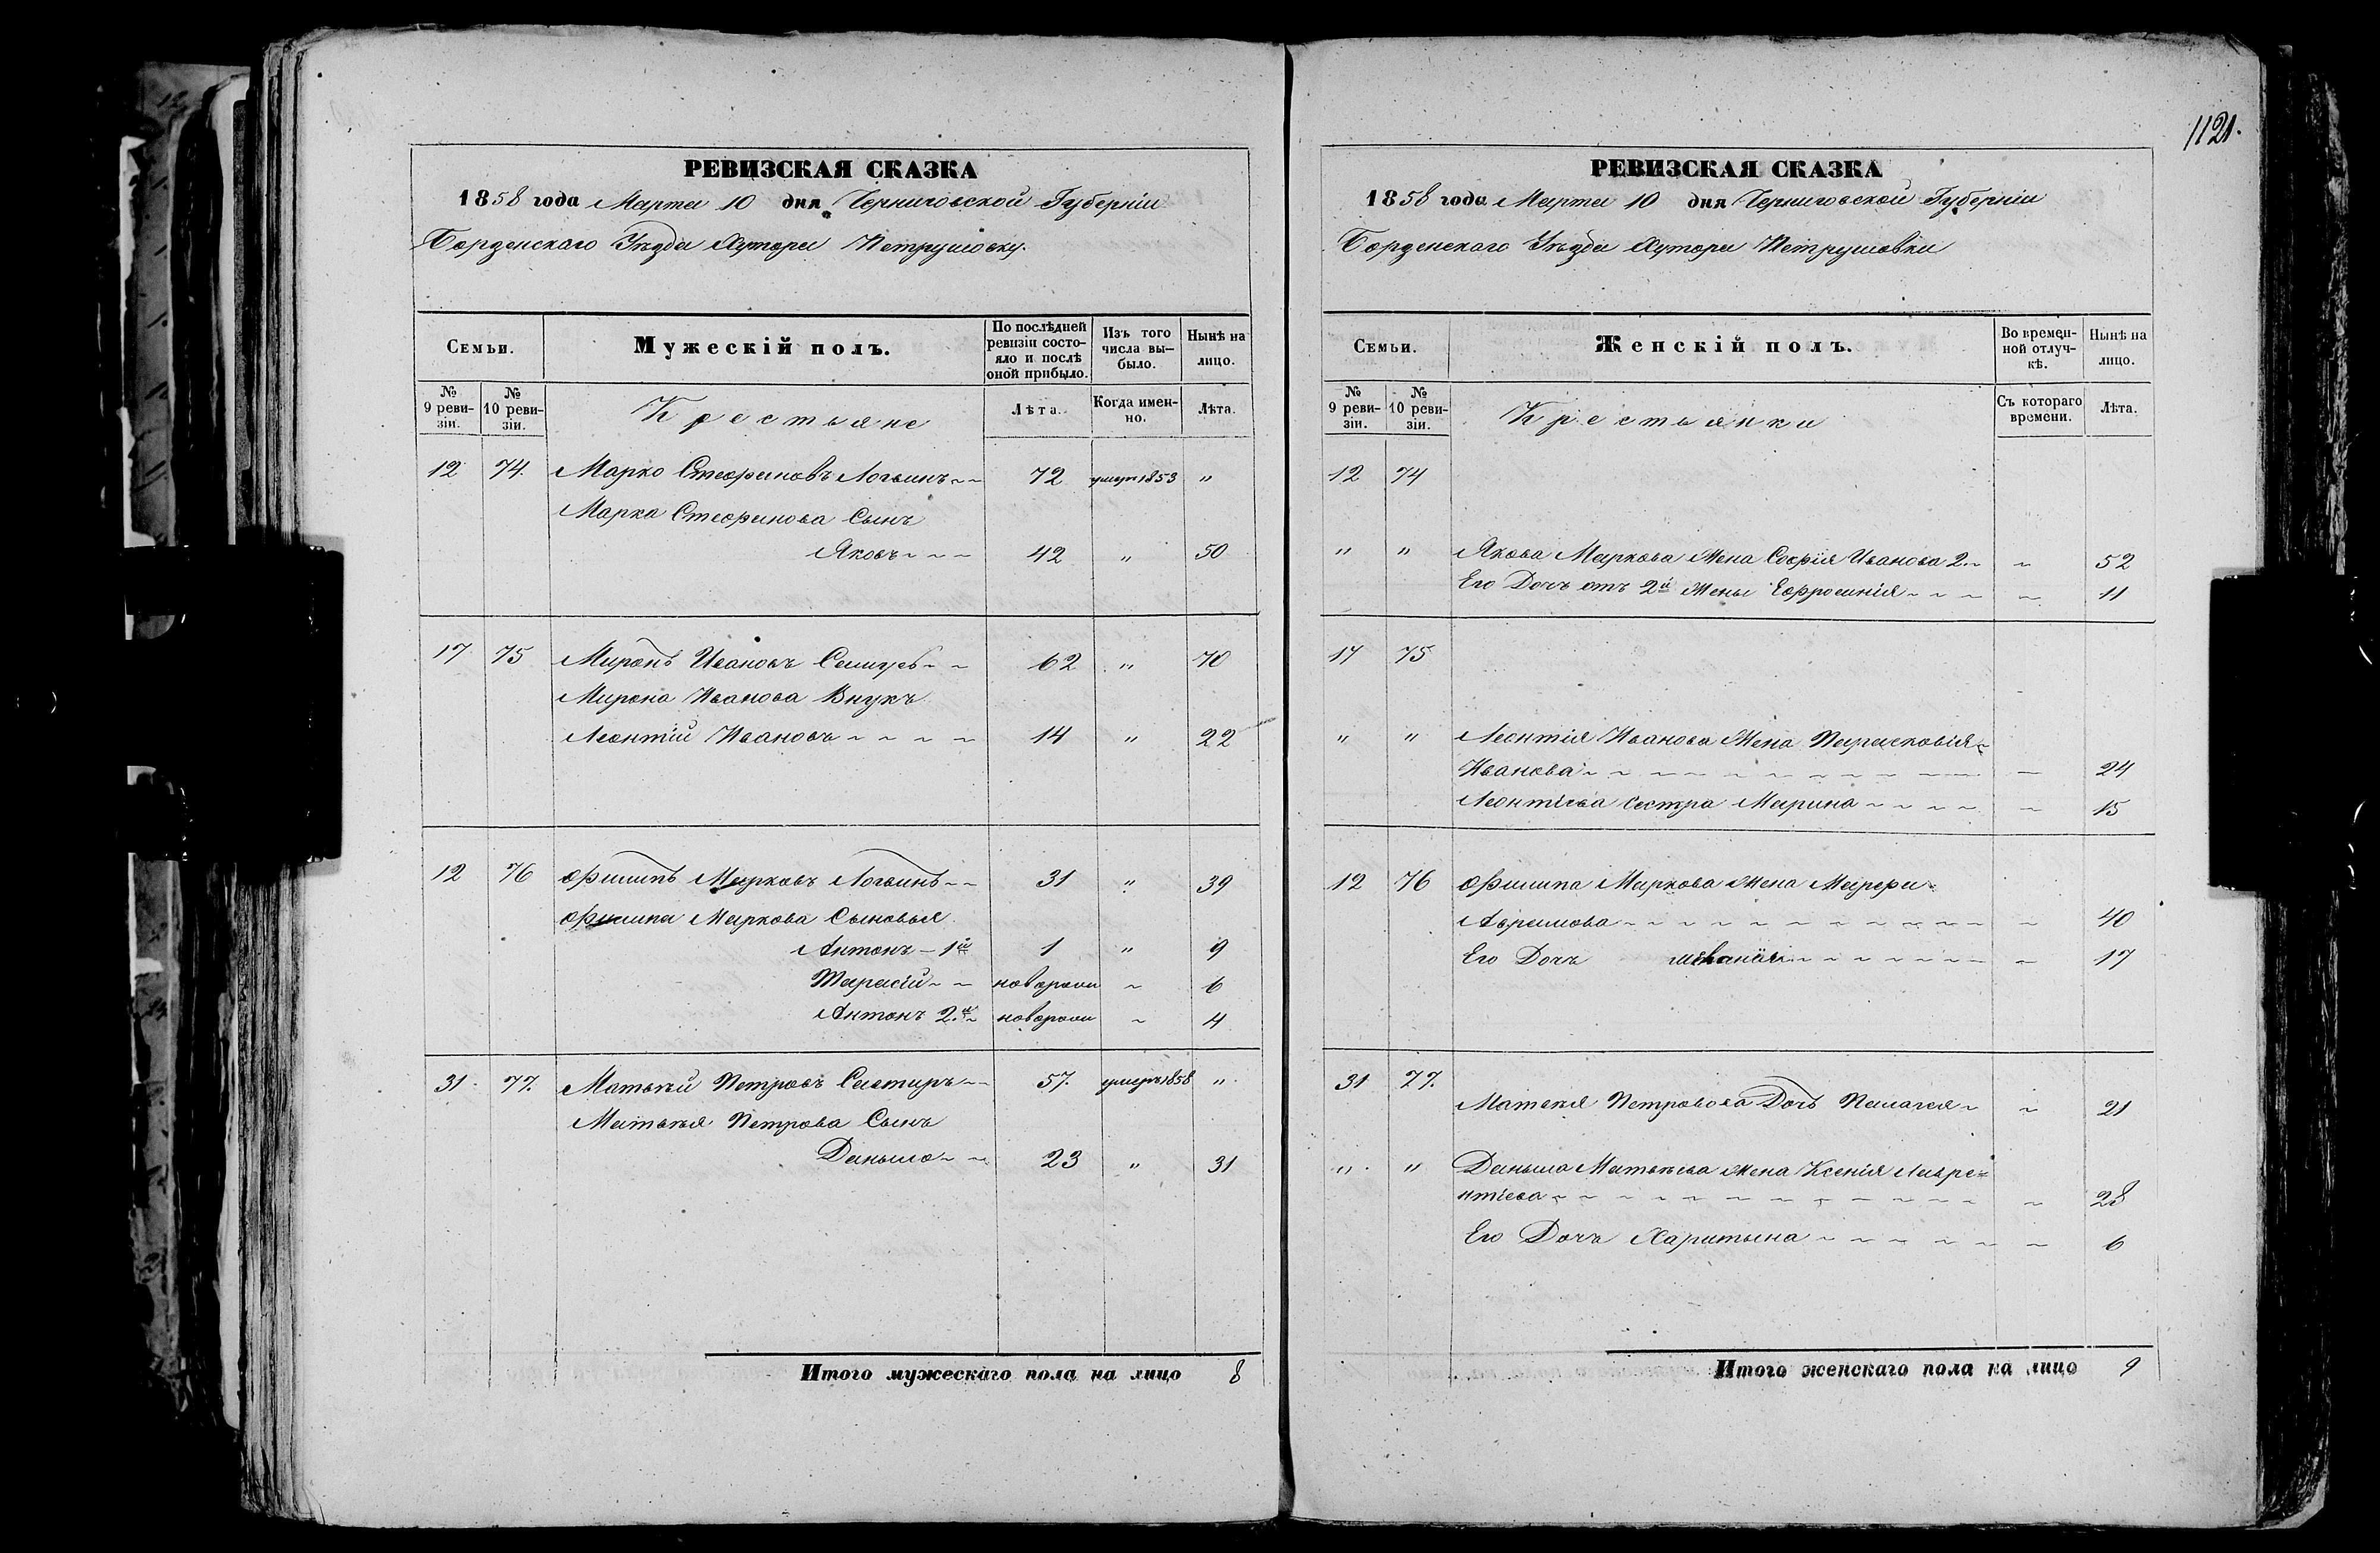 1121.
РЕВИЗСКАЯ СКАЗКА
1858 года Марта 10 дня Черниговской Губерніи
Борзенскаго Уѣзда Хутора Петрушовку.
Семьи. Мужескій полъ. По послѣдней ревизіи состояло и послѣ оной прибыло. Изъ того числа выбыло. Нынѣ на лицо.
№ 9 ревизіи. № 10 ревизіи. Крестьяне Лѣта. Когда именно. Лѣта.
12 74. Марко Стефановъ Логвинъ 72 умеръ 1853 "
Марка Стефанова Сынъ
Яковъ 42 " 50
17 75 Миронъ Ивановъ 62 " 70
Мирона Иванова Внукъ
Леонтій Ивановъ 14 " 22
12 76 Филипъ Марковъ Логвинъ 31 " 39
Филипа Маркова Сыновья
Антонъ 1й 1 " 9
Тарасій новорож 6
Антонъ 2й новорож 4
31 77. Матвѣй Петровъ 57. умеръ 1858 "
Матвѣя Петрова Сынъ
Даныло 23 " 31
Итого мужескаго пола на лицо 8
РЕВИЗСКАЯ СКАЗКА
1858 года Марта 10 дня Черниговской Губерніи
Борзенскаго Уѣзда Хутора Петрушовки
Семьи. Женскій полъ. Во временной отлучкѣ. Нынѣ на лицо.
№ 9 ревизіи. № 10 ревизіи. Крестьянки Съ котораго времени. Лѣта.
12 74
" " Якова Маркова Жена Софія Иванова 2. 52
Его Дочь отъ 2й Жены Ефросинія 11
17 75
" " Леонтія Иванова Жена Парасковія
Иванова 24
Леонтіева Сестра Марина 15
12 76 Филипа Маркова Жена Марфа
Аврамова 40
Его Дочь 17
31 77.
Матвѣя Петровова Дочь Пелагея 21
" " Даныла Матвѣева Жена Ксенія Лавре=
нтіева 28
Его Дочь Харитына 6
Итого женскаго пола на лицо 9